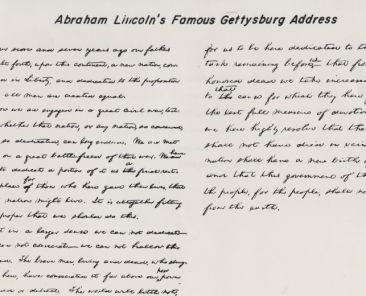 Abraham Lincoln's Famous Gettysburg Address
score and seven years ago our fathe
forth, upon this continent, a new nation, con
in Liberty, and dedicated to the proposition
all men are created equal.
we are engaged in a great civil war, test
whether that nation, or any nation, so conceived,
so dedicated, can long endure. We are met
on a great battle field of that war. We
have
to dedicate a portion of it as the
a
for
place of those who here gave their lives, that
nation might live. It is altogether fitting
proper that we should do this.
in a larger sense we can not dedicate
can not consecrate we can not hallow this
The brave men, living and dead, who
here, have consecrated it far above our
poor
or detract. The world will little note,
for us to be here dedicated to
task remaining before
us
that
honored dead we take increased
that
to the cause for which they here
the last full measure of devotion
we here highly resolve that
shall not have died in vain
nation shall have a new birth
and that this government of
the people, for the people, shall not
from the earth.